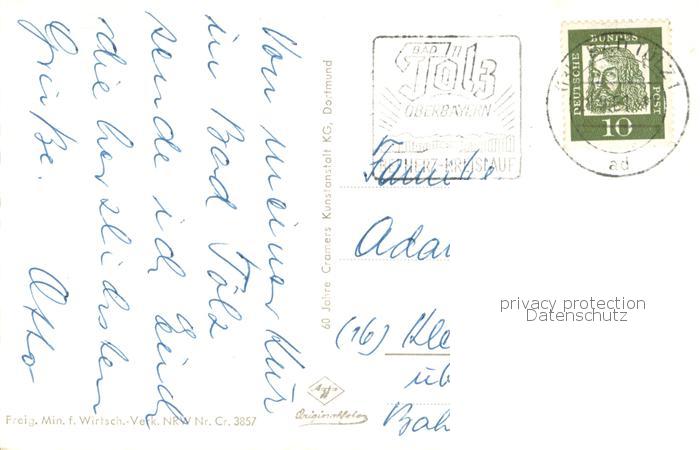 Von meiner Kur
in Bad Tölz
sende ich Euch
die herzlichsten
Grüße.
Otto
60 Jahre Cramers Kunstanstalt KG, Dortmund
Freig. Min. f. Wirtsch.-Verk. NRW Nr. Cr. 3857
Agfa
BAD
Tölz
OBERBAYERN
HERZ-KREISLAUF
DEUTSCHE
BUNDES
POST
10
ad
Familie
Adar
(16) Kle
üb
Bah
privacy protection
Datenschutz